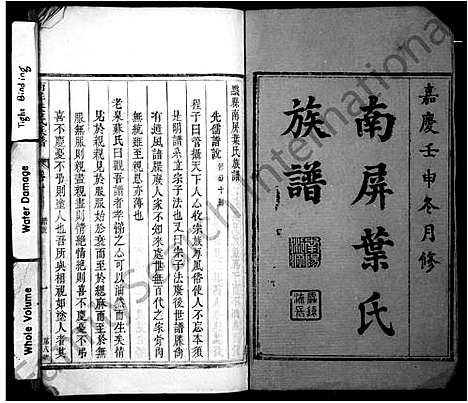 嘉慶壬申冬月修
南屏葉氏
族譜
黟縣南屏葉氏族譜
先儒譜說
程子曰管攝天下人心收宗族厚風俗使人不忘本須
是明譜系立宗子法又曰宗子法廢後世譜牒尚
有遺風譜牒廢人家不知來處無百代之家骨肉
無統雖至親恩亦薄也
老泉蘇氏曰觀吾譜者孝悌之心可以油然而生矣情
見於親親見於服服始於衰而至於緦麻而至於無
服無服則親盡親盡則情絕情絕則喜不慶憂不弔
喜不慶憂不弔則塗人也吾所與相視如塗人者其
Tight Binding
Water Damage
Whole Volume
FamilySearch International